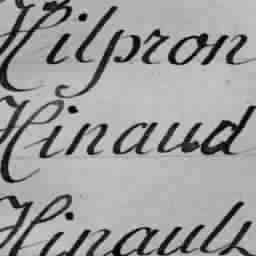 Hilpron
Hinaud
Hinauls